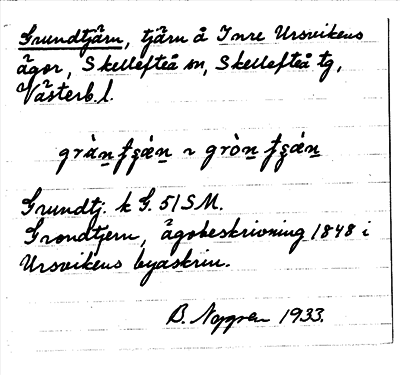 Grundtjärn, tjärn å Inre Ursvikens
ägor, Skellefteå sn, Skellefteå tg,
Västerb. l.
Grundtj. k G. 51 SM.
Grondtjern, ägobeskrivning 1848 i
Ursvikens byaskrin.
B. Nygren 1933.